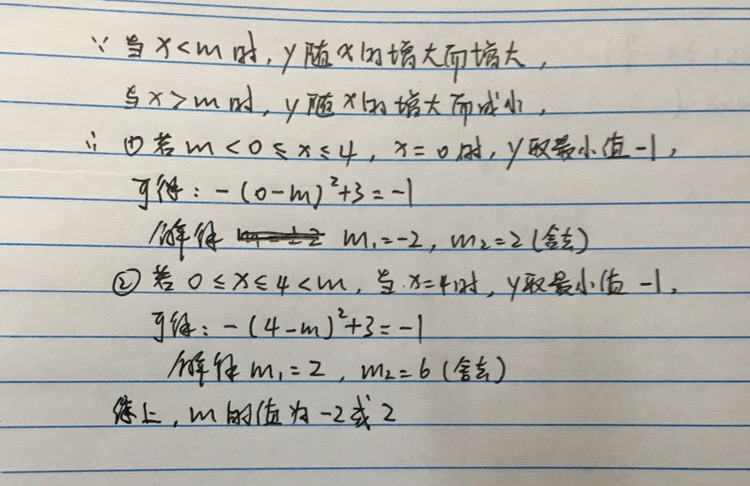 ∵ 当x<m时，y随x的增大而增大，
当x>m时，y随x的增大而减小，
∴ ①若m<0≤x≤4，x=0时，y取最小值-1，
可得：-(0-m)²+3=-1
解得 m₁=-2，m₂=2(舍去)
②若0≤x≤4<m，当x=4时，y取最小值-1，
可得：-(4-m)²+3=-1
解得m₁=2，m₂=6(舍去)
综上，m的值为-2或2